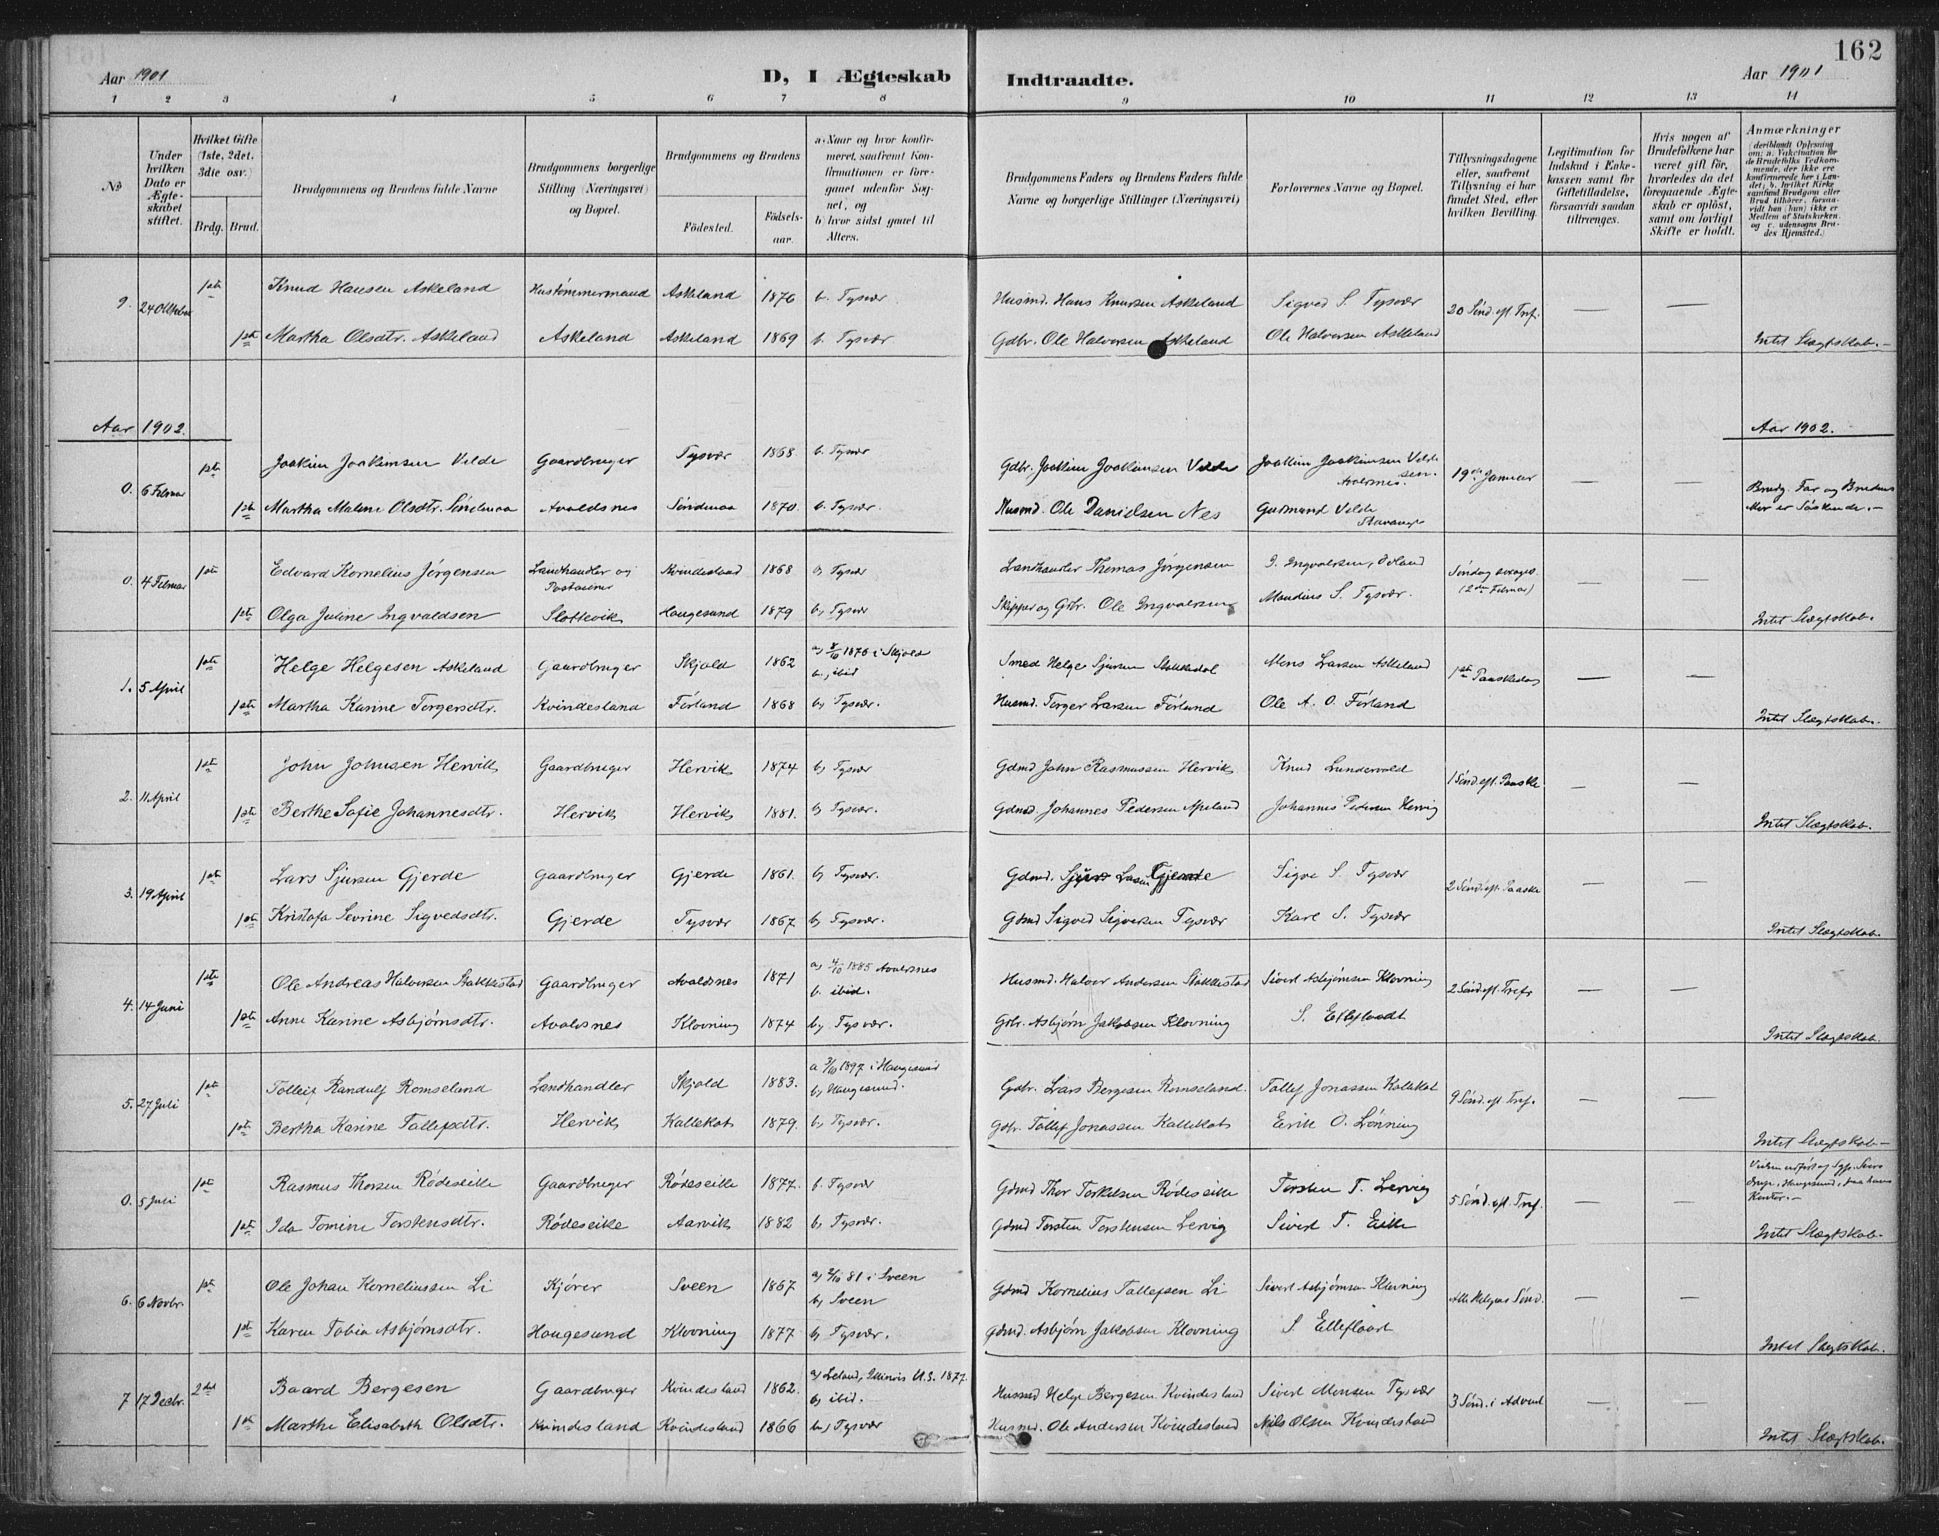 162
Aar 1901
D, I Ægteskab Indtraadte.
Aar 1901
1 2 3 4 5 6 7 8 9 10 11 12 13 14
No
Under hvilken Dato er Ægteskabet stiftet.
Hvilket Gifte (1ste, 2det, 3die osv.)
Brdg. Brud.
Brudgommens og Brudens fulde Navne
Brudgommens borgerlige Stilling (Næringsvei) og Bopæl.
Brudgommens og Brudens
Födested.
Födselsaar.
a. Naar og hvor konfirmeret, saafremt Konfirmationen er foregaaet udenfor Sognet, og
b. hvor sidst gaaet til Alters.
Brudgommens Faders og Brudens Faders fulde Navne og borgerlige Stillinger (Næringsvei)
Forlovernes Navne og Bopæl.
Tillysningsdagene eller, saafremt Tillysning ei har fundet Sted, efter hvilken Bevilling.
Legitimation for Indskud i Enkekassen samt for Giftetilladelse, forsaavidt saadan tiltrænges.
Hvis nogen af Brudefolkene har været gift för, hvorledes da det foregaaende Ægteskab er oplöst, samt om lovligt Skifte er holdt.
Anmærkninger (deriblandt Oplysning om: a. Vakcination for de Brudefolks Vedkommende, der ikke ere konfirmerede her i Landet; b. hvilket Kirkesamfund Brudgom eller Brud tilhörer, forsaavidt han (hun) ikke er Medlem af Statskirken, og c. udensogns Brudes Hjemsted.)
9. 24 Oktober 1ste Knud Hansen Askeland Hustømmermand Askeland 1876 b. Tysvær Husmd. Hans Knutsen Askeland Sigved S. Tysvær 20 Sönd. eft. Tref. — —
1ste Martha Olsdtr. Askeland Askeland Askeland 1869 b. Tysvær Gdbr. Ole Halvorsen Askeland Ole Halvorsen Askeland Intet Slægtskab.-
Aar 1902. Aar 1902.
0. 6 Februar 1ste Joakim Joakimsen Velde Gaardbruger Tysvær 1868 b. Tysvær Gdbr. Joakim Joakimsen Velde Joakim Joakimsen Velde sen. Avalsnes. 19de Januar — —
1ste Martha Malene Olsdtr. Søndenaa Avaldsnes Søndenaa 1870. b. Tysvær. Husmd. Ole Danielsen Nes Gudmund Velde Stavanger Brudg. Far og Brudens Mor er Søskende.-
0. 4 Februar 1ste Edvard Kornelius Jørgensen Landhandler og Kvindesland 1868 b) Tysvær Landhandler Thomas Jørgensen I. Ingvaldsen, Odland — —
1ste Olga Juline Ingvaldsen Slottevik Haugesund 1879 b) Tysvær Skipper og Gbr. Ole Ingvaldsen Maudius S. Tysvær. (2den Februar) Intet Slægtskab.
1. 5 April 1ste Helge Helgesen Askeland Gaardbruger Skjold 1862 1876 i Skjold b., ibid Smed Helge Sjursen Stakkedal Mons Larsen Askeland 1ste Paaskedag — —
1ste Martha Karine Torgersdtr. Kvindesland Førland 1868 b) Tysvær. Husmd. Torger Larsen Førland Ole A. O. Førland Intet Slægtskab.
2. 11 April 1ste John Johnsen Hervik Gaardbruger Hervik 1874 b) Tysvær Gdmd John Rasmussen Hervik Knud Lundevold 1 Sönd. eft. Paaske — —
1ste Berthe Sofie Johannesdtr. Hervik Hervik 1881. b) Tysvær. Gdmd Johannes Pedersen Apeland Johannes Pedersen Hervig Intet Slægtskab.
3. 19 April 1ste Lars Sjursen Gjerde Gaardbruger Gjerde 1861. b) Tysvær. Gdmd. Sjurs Larsen Gjerde Sigve S. Tysvær 2 Sönd. eft. Paaske — —
1ste Kristofa Sevrine Sigvedsdtr. Gjerde Tysvær 1867. b) Tysvær. Gdmd Sigved Sigvesen Tysvær Karl S. Tysvær Intet Slægtskab.
4. 14 Juni 1ste Ole Andreas Halvorsen Stakkestad Gaardbruger Avaldsnes 1871 a) 4/10 1885 Avalsnes b. ibid. Husmd. Halvor Andersen Stakkestad Sivert Asbjørnsen Klovning 2 Sönd. eft. Tref. — —
1ste Anne Karine Asbjørnsdtr. Avaldsnes Klovning 1874 b) Tysvær. Gbr. Asbjørn Jakobsen Klovning S. Ellefladt Intet Slægtskab.
5. 27 Juli 1ste Tolleif Randulf Romseland Landhandler Skjold 1883. a 3/10 1897 i Haugesund b) Haugesund. Gdbr. Lars Bergesen Romseland. Tollef Jonassen Kallekot 9 Sönd. eft. Tref. — —
1ste Bertha Karine Tallefsdtr. Hervik Kallekot 1879. b) Tysvær. Gdbr. Tollef Jonassen Kallekot Eirik O. Lønning Intet Slægtskab-
0. 5 Juli 1ste Rasmus Thorsen Rødeseike Gaardbruger Rødeseike 1877. b. Tysvær Gdmd Thor Torkelsen Rødeseike Torsten T. Lervig 5 Sönd. eft. Tref. — — Haugesund, paa hans Kontor.-
1ste Ida Tomine Torstensdtr. Rødeseike Aarvik 1882 b) Tysvær. Gdmd Torsten Torstensen Lervig Sivert T. Eike Intet Slægtskab.
6. 6 Novbr. 1ste Ole Johan Korneliussen Li Kjører Sveen 1867 a) 2/10 81 i Sveen b) Sveen Gdmd Kornelius Tallefsen Li Sivert Asbjørnsen Klovning Alle Helgens Sönd. — —
1ste Karen Tobia Asbjørnsdtr. Haugesund Klovning 1877 b) Tysvær. Gdmd. Asbjørn Jakobsen Klovning S. Ellefladt Intet Slægtskab.
7 17 Decbr. 2det Baard Bergesen Gaardbruger Kvindesland 1862. a) Leland, Illinois U.S. 1877. b) ibid. Husmd Helge Bergesen Kvindesland Sivert Monsen Tysvær 3 Sönd. i Advent — —
1ste Marthe Elisabeth Olsdtr. Kvindesland Kvindesland 1866 b) Tysvær Husmd. Ole Andersen Kvindesland Nils Olsen Kvindesland Intet Slægtskab.